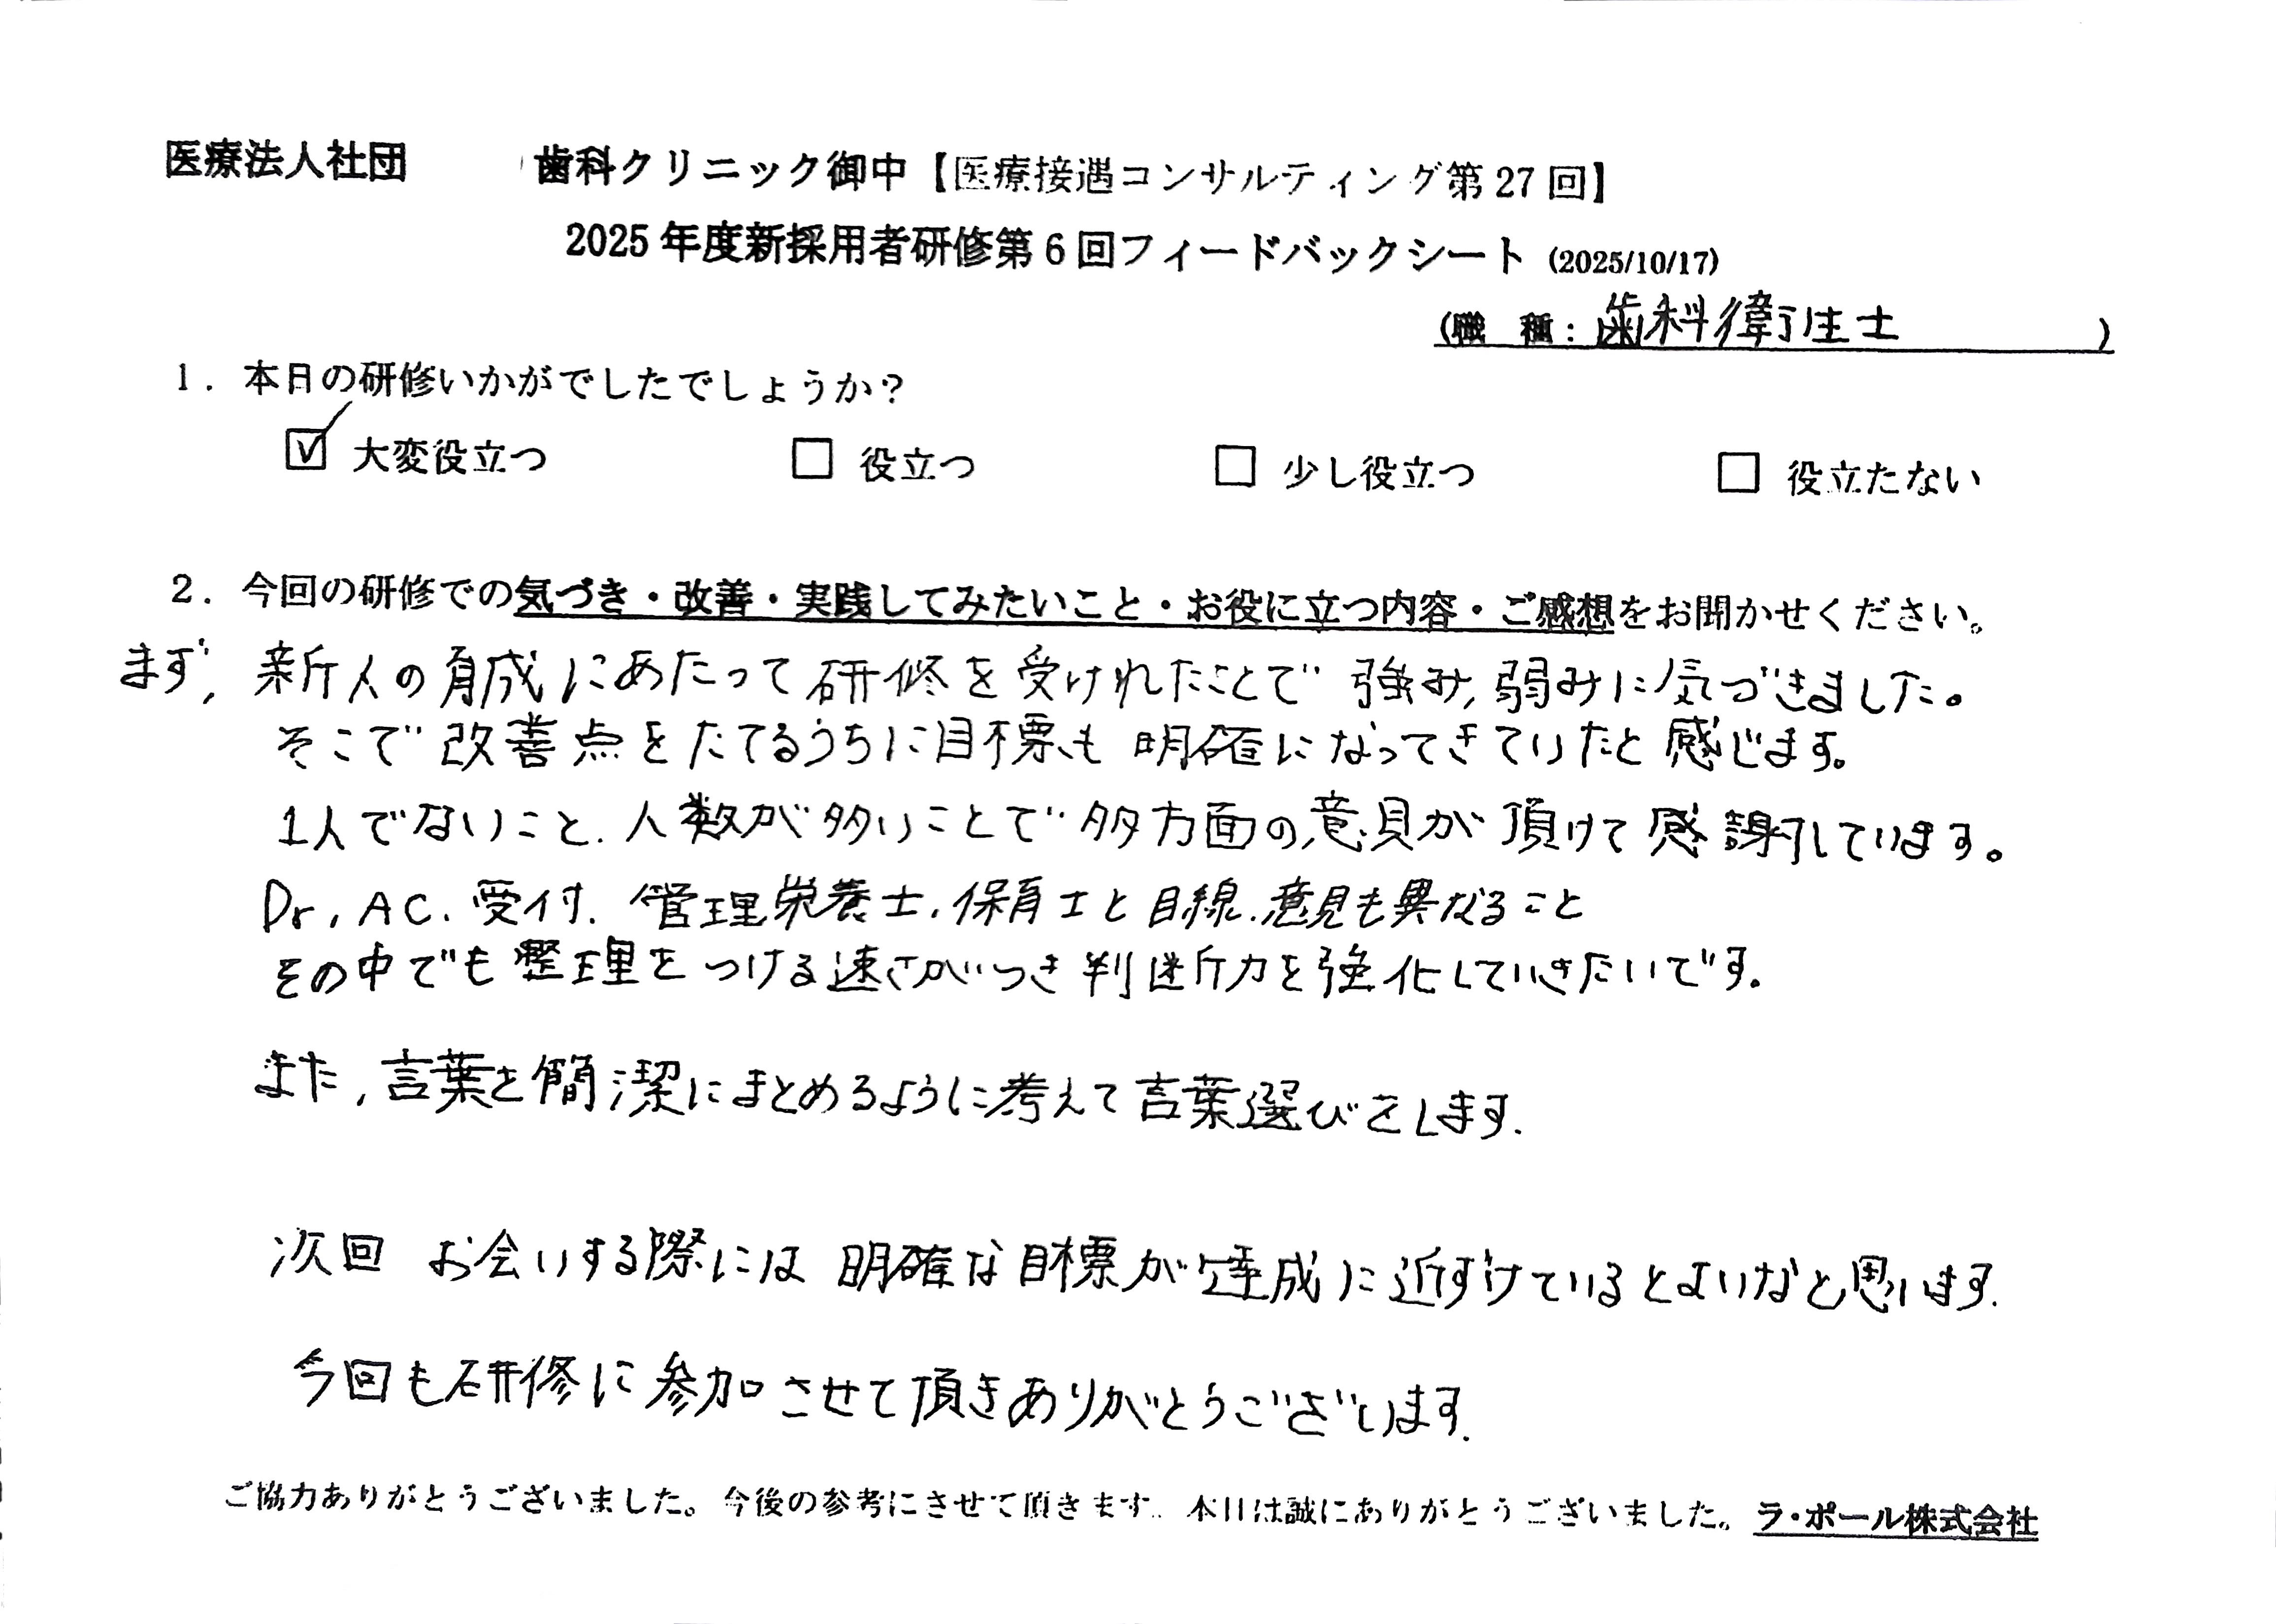 医療法人社団 歯科クリニック御中【医療接遇コンサルティング第27回】
2025年度新採用者研修第6回フィードバックシート (2025/10/17)
(職 種：歯科衛生士 )
1．本日の研修いかがでしたでしょうか？
☑ 大変役立つ □ 役立つ □ 少し役立つ □ 役立たない
2．今回の研修での気づき・改善・実践してみたいこと・お役に立つ内容・ご感想をお聞かせください。
まず、新人の育成にあたって研修を受けれたことで強み、弱みに気づきました。
そこで改善点をたてるうちに目標も明確になってきていたと感じます。
1人でないこと、人数が多いことで多方面の意見が頂けて感謝しています。
Dr, AC. 受付. 管理栄養士. 保育士と目線.意見も異なること
その中でも整理をつける速さがつき判断力を強化していきたいです。
また,言葉を簡潔にまとめるように考えて言葉選びをします.
次回 お会いする際には明確な目標が達成に近ずけているとよいなと思います.
今回も研修に参加させて頂きありがとうございます.
ご協力ありがとうございました。今後の参考にさせて頂きます。本日は誠にありがとうございました。ラ・ポール株式会社